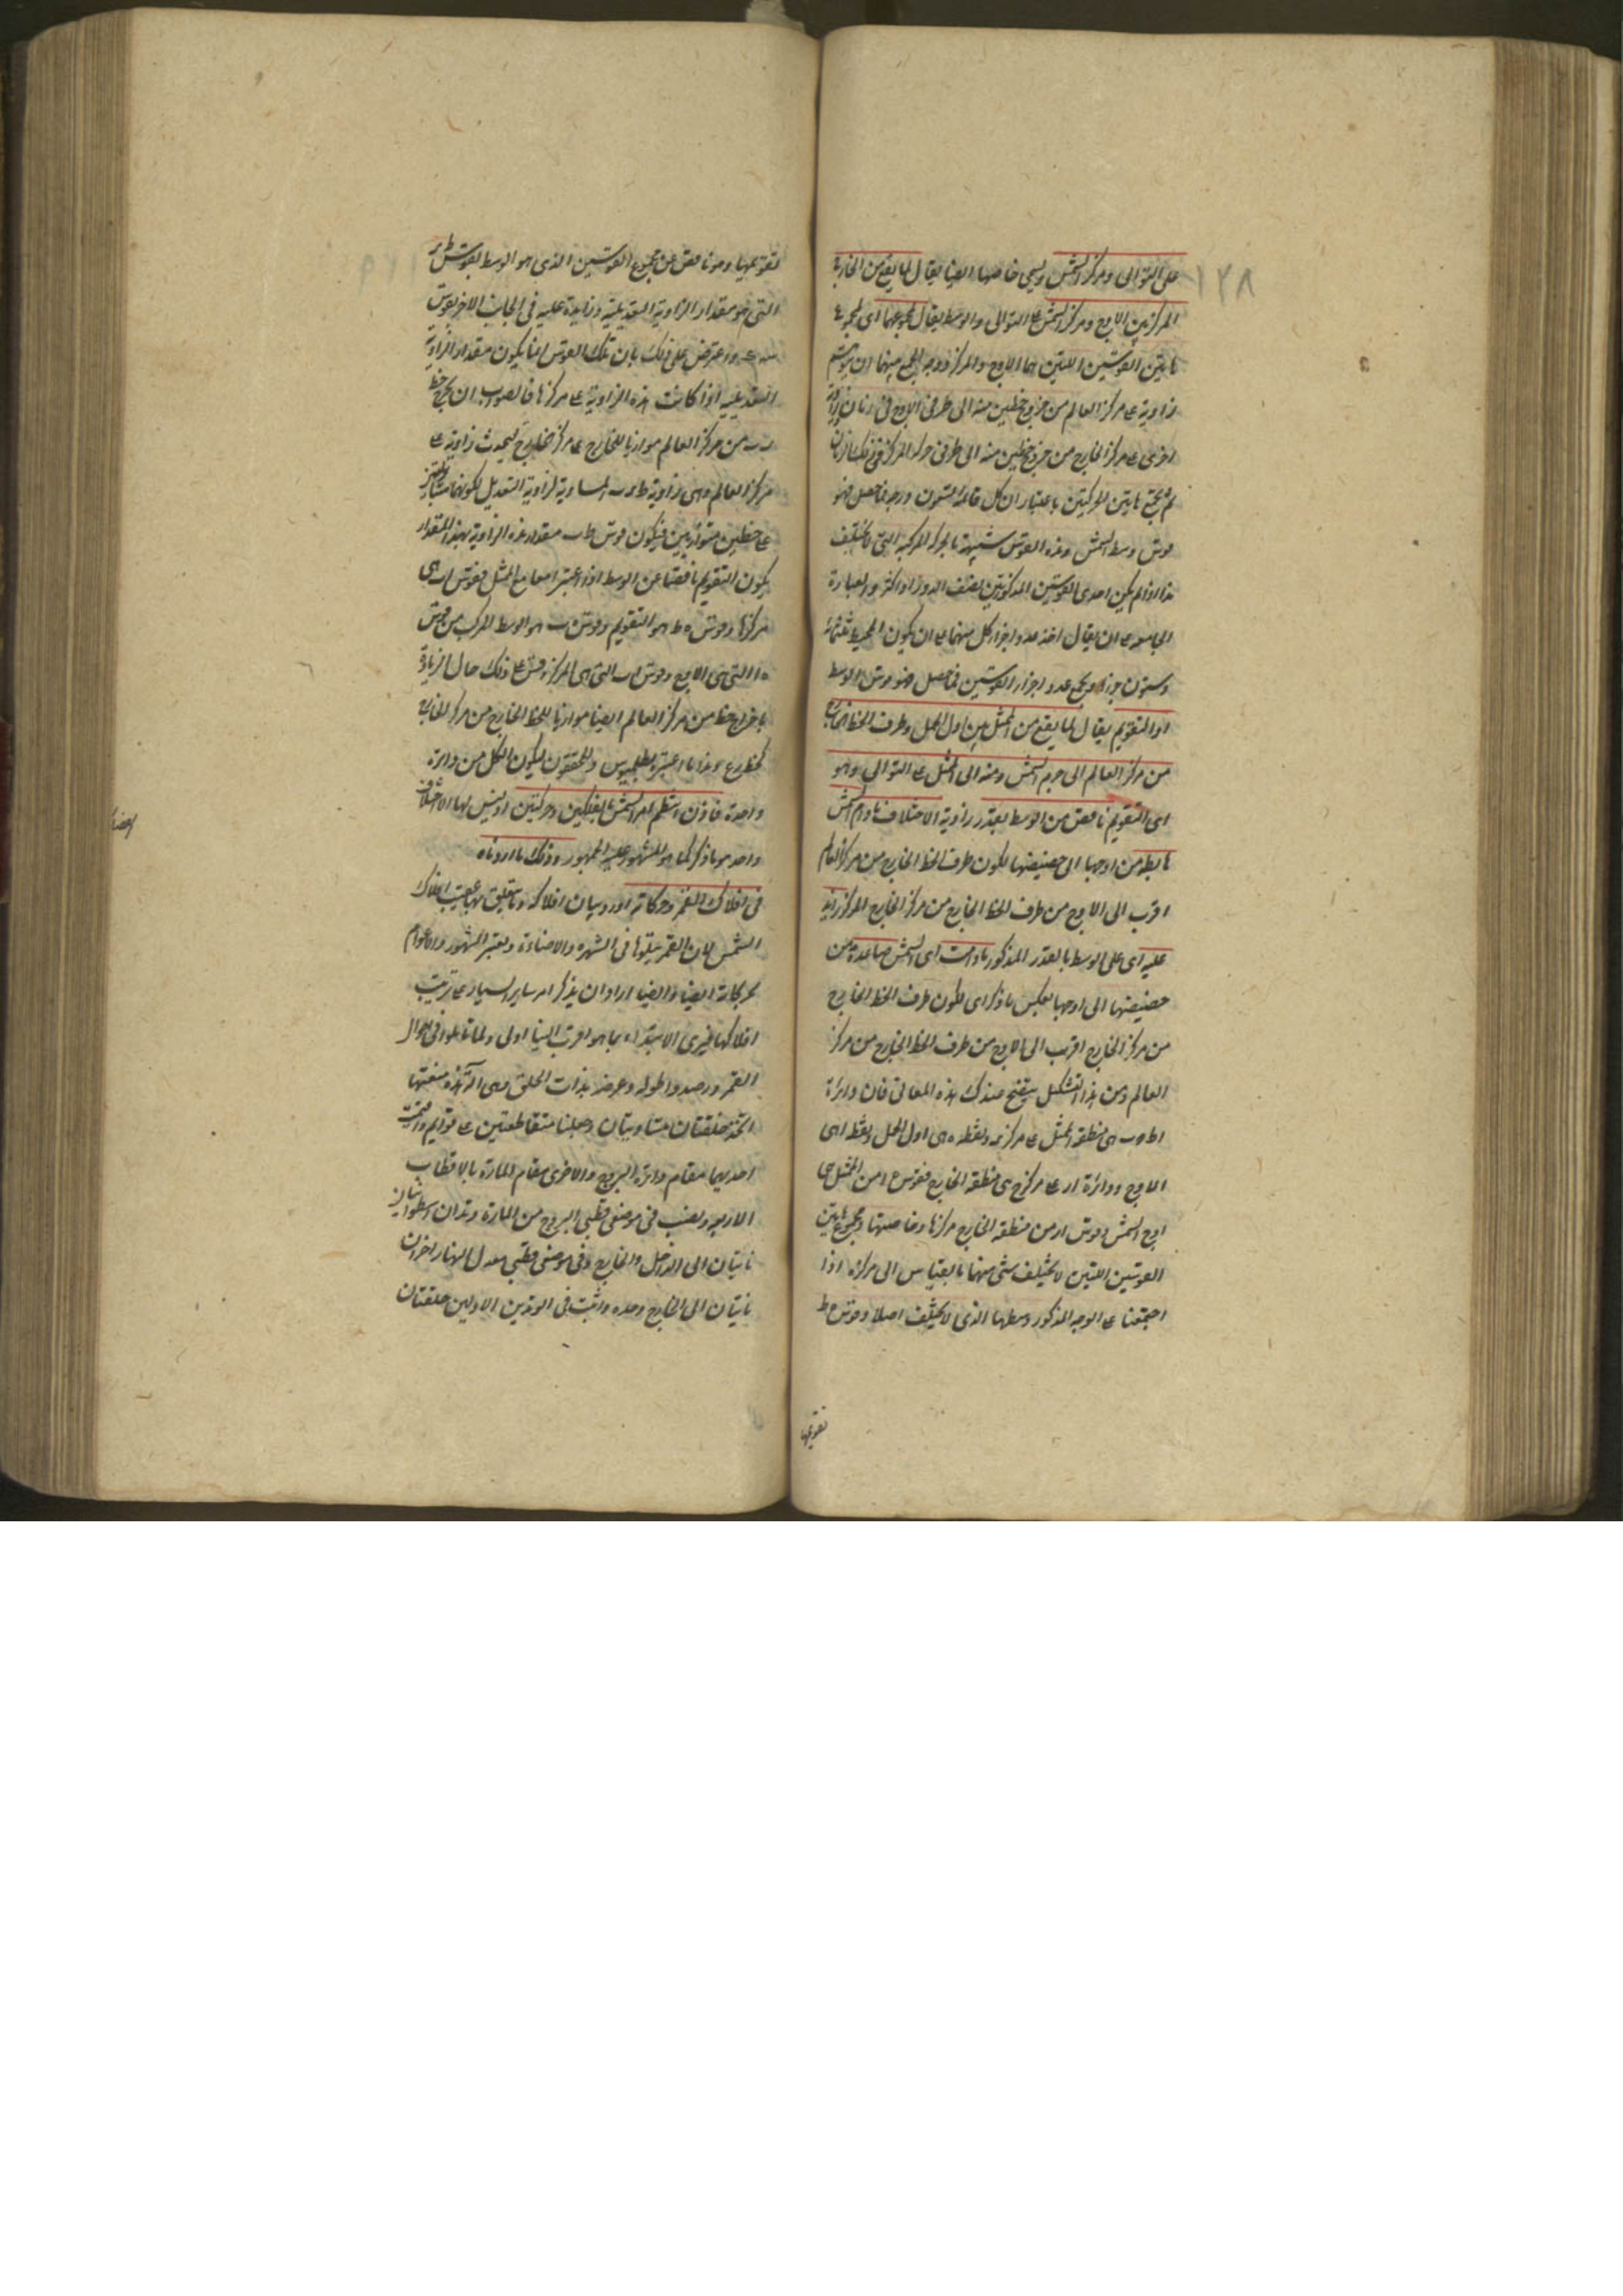 ١٢٨
على التوالى ومركز الشمس ويسمى خاصتها ايضا يقال لما يقع من الخارج
المركز بين الاوج ومركز الشمس على التوالى والوسط يقال لمجموعهما اى لمجموع
هاتين القوسين اللتين هما الاوج والمركز ووجه الجمع بينهما ان يرتسم
زاوية على مركز العالم من خروج خطين منه الى طرفى الاوج
اخرى على مركز الخارج من خروج خطين منه الى طرفى
ثم يجمع هاتين الحركتين باعتبار ان كل قائمة تسعون درجة فما حصل فهو
قوس وسط الشمس وهذه القوس شبيهة بالحركة المركبة التى لا تختلف
هذا اذا لم يكن احدى القوسين المذكورتين نصف الدور او اكثر والعبارة
الجامعة ان يقال اخذ عدد اجزاء كل منهما على ان يكون المحيط ثلثمائة
وستون جزءا ويجمع عدد اجزاء القوسين فما حصل فهو قوس الوسط
والتقويم يقال لما يقع من الممثل بين اول الحمل وطرف الخط الخارج
من مركز العالم الى جرم الشمس ومنه الى الممثل على التوالى وهو
اى التقويم ناقص من الوسط بقدر زاوية الاختلاف مادام الشمس
هابطة من اوجها الى حضيضها لكون طرف الخط الخارج من مركز العالم
اقرب الى الاوج من طرف الخط الخارج من مركز الخارج المركز زايد
عليه اى على الوسط بالقدر المذكور مادامت اى الشمس صاعدة من
حضيضها الى اوجها بعكس ما ذكر اى لكون طرف الخط الخارج
من مركز الخارج اقرب الى الاوج من طرف الخط الخارج من مركز
العالم ومن هذا الشكل يتضح عندك هذه المعانى فان دائرة
اط ه ب هى منطقة الممثل على مركز ونقطة ه هى اول الحمل ونقطة ا هى
الاوج ودائرة ار على مركز ح هى منطقة الخارج فقوس ه ا من الممثل هى
اوج الشمس وقوس ار من منطقة الخارج مركزها وخاصتها ومجموع هاتين
القوسين اللتين لا يختلف شئ منهما بالقياس الى مركزه اذا
اجتمعتا على الوجه المذكور وسطها الذى لا يختلف اصلا وقوس ه ط
تقويمها
تقويمها وهو ناقص عن مجموع القوسين الذى هو الوسط بقوس ط
التى هو مقدار الزاوية التعديلية وزايدة عليه فى الجانب الاخر بقوس
واعترض على ذلك بان تلك القوس انما يكون مقدار الزاوية
التعديلية اذا كانت هذه الزاوية على مركزها فالصواب ان يخرج خط
من مركز العالم موازيا للخارج على مركز الخارج ليحدث زاوية على
مركز العالم وهى زاوية المساوية لزاوية التعديل لكونهما متبادلتين
على خطين متوازيين فيكون قوس ط ب مقدار هذه الزاوية بهذا المقدار
يكون التقويم ناقصا عن الوسط اذا اعتبرا معا من الممثل فقوس اب هى
مركزها وقوس ه ط هو التقويم وقوس ه ب هو الوسط المركب من قوس
ه ا التى هى الاوج وقوس اب التى هى المركز وقس على ذلك حال الزيادة
باخراج خط من مركز العالم ايضا موازيا للخط الخارج من مركز الخارج
كخط وهذا ما اعتبره بطلميوس والمحققون ليكون الكل من دائرة
واحدة فاذن انتظم امر الشمس بفلكين وحركتين وليس لها الا اختلاف
واحد هو ما ذكر كما هو المشهور عليه الجمهور وذلك ما اردناه
فى افلاك القمر وحركاته اورد بيان افلاكه وما يتعلق بها عقيب افلاك
الشمس لان القمر يتلوها فى الشهرة والاضاءة ويعتبر الشهور والاعوام
بحركاته ايضا وايضا اراد ان يذكر امر ساير السيارة على ترتيب
افلاكها فيرى الابتداء بما هو اقرب الينا اولى ولما تاملوا فى احوال
القمر ورصدوا طوله وعرضه بذات الحلق وهى آلة هذه صنعتها
اتخذ حلقتان متساويتان وجعلتا متقاطعتين على قوايم واقيمت
احديهما مقام دائرة البروج والاخرى مقام المارة بالاقطاب
الاربعة ونصب فى موضعى قطبى البروج من المارة وتدان اسطوانيان
ناتيان الى الداخل والخارج وفى موضعى قطبى معدل النهار اخران
ناتيان الى الخارج وحده واثبت فى الوتدين الاولين حلقتان